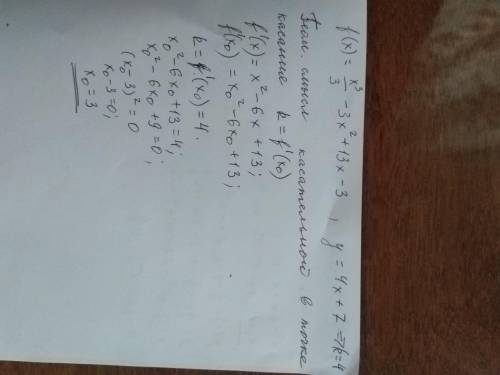 f(x) = x³/3 - 3x² + 13x - 3 , y = 4x + 7 ⇒ k = 4
Геом. смысл касательной в точке
касания k = f'(x₀)
f'(x) = x² - 6x + 13;
f'(x₀) = x₀² - 6x₀ + 13;
k = f'(x₀) = 4.
x₀² - 6x₀ + 13 = 4;
x₀² - 6x₀ + 9 = 0;
(x₀ - 3)² = 0
x₀ - 3 = 0;
x₀ = 3